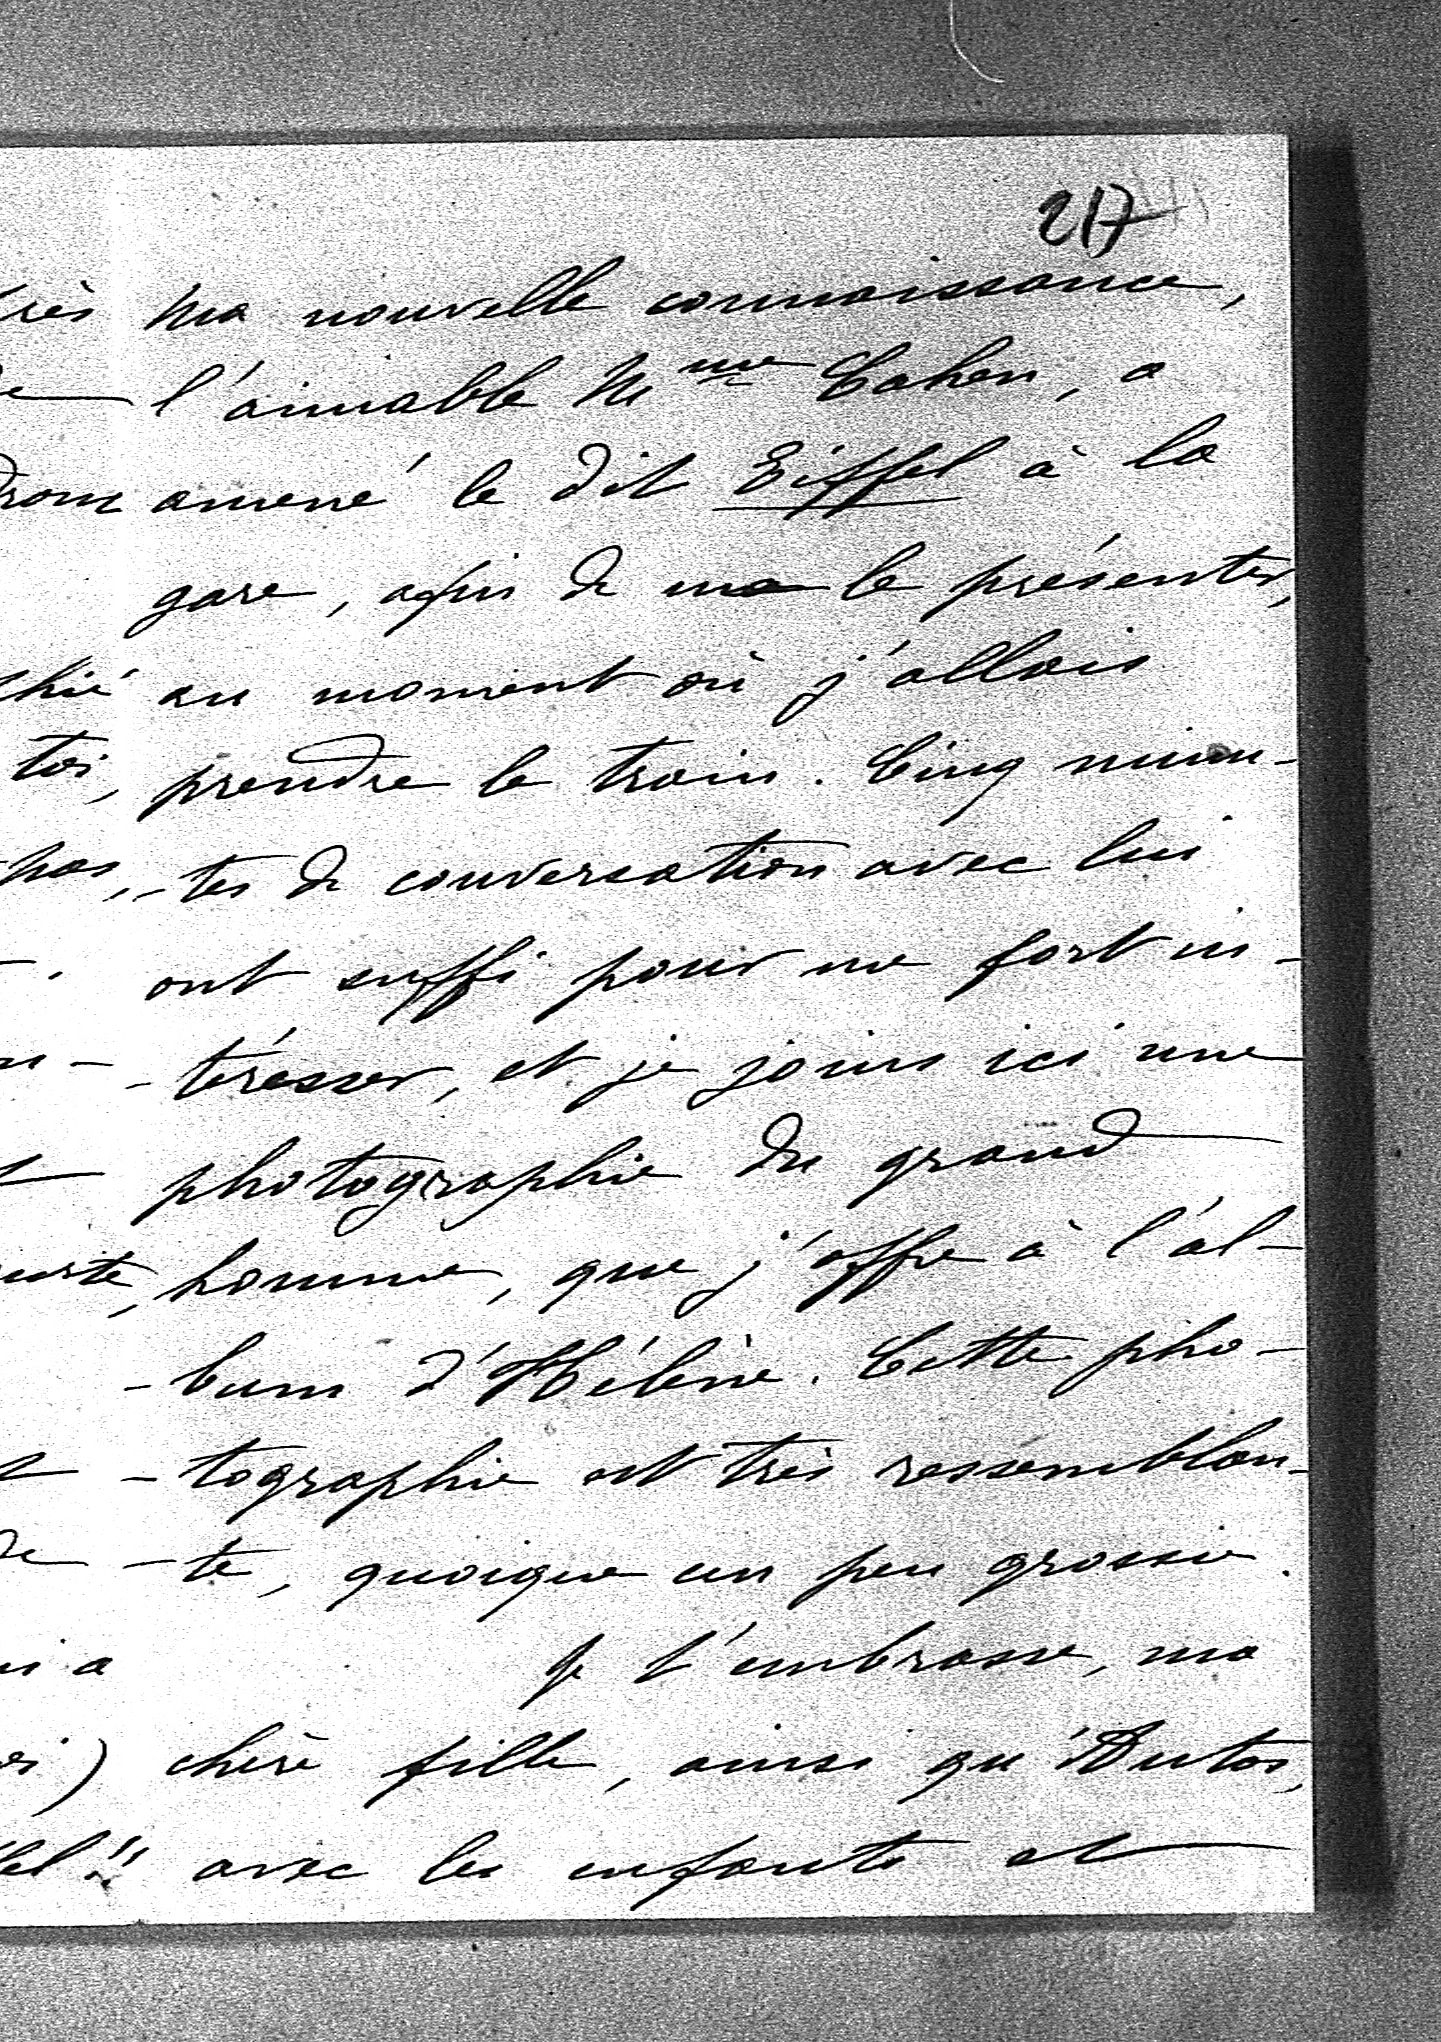 217
ma nouvelle connaissance,
l'aimable Mme Cahen, a
amené le dit Eiffel à la
gare, afin de me le présenter,
au moment où j'allais
toi, prendre le train. Cinq minu-
-tes de conversation avec lui
ont suffi pour me fort in-
-téresser, et je joins ici une
photographie du grand
homme, que j'offre à l'al-
-bum d'Hélène. Cette pho-
-tographie est très ressemblan-
-te, quoique un peu grossie.
Je t'embrasse, ma
chère fille, ainsi qu'
avec les enfants et